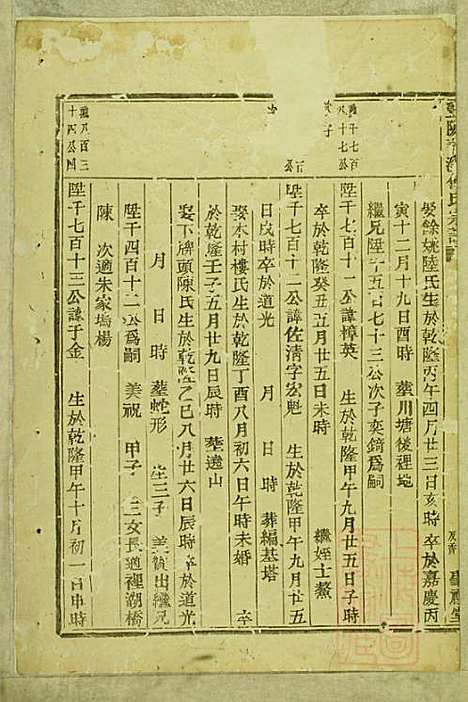 娶餘姚陸氏生於乾隆丙午四月廿三日亥時 卒於嘉慶丙
寅十二月十九日酉時 塟川塘後裡地
繼兄陞千五百七十三公次子奕錡爲嗣
陞千七百十一公諱樟英 生於乾隆甲午九月廿五日子時
卒於乾隆癸丑五月廿五日未時 繼姪士鰲
陞千七百十二公諱佐清字宏魁 生於乾隆甲午九月廿五
日戌時卒於道光 月 日 時 葬編基塔
娶本村樓氏生於乾隆丁酉八月初六日午時未婚 卒
於乾隆壬子五月廿九日辰時 塟遠山
娶下牌頭陳氏生於乾隆乙巳八月廿六日辰時 於道光
月 日 時 塟蛇形 生三子 美 出繼兄
陞千四百十二公爲嗣 美祝 甲子 三女長適裡湖橋
陳 次適朱家塢楊
陞千七百十三公諱于金 生於乾隆甲午十月初一日申時